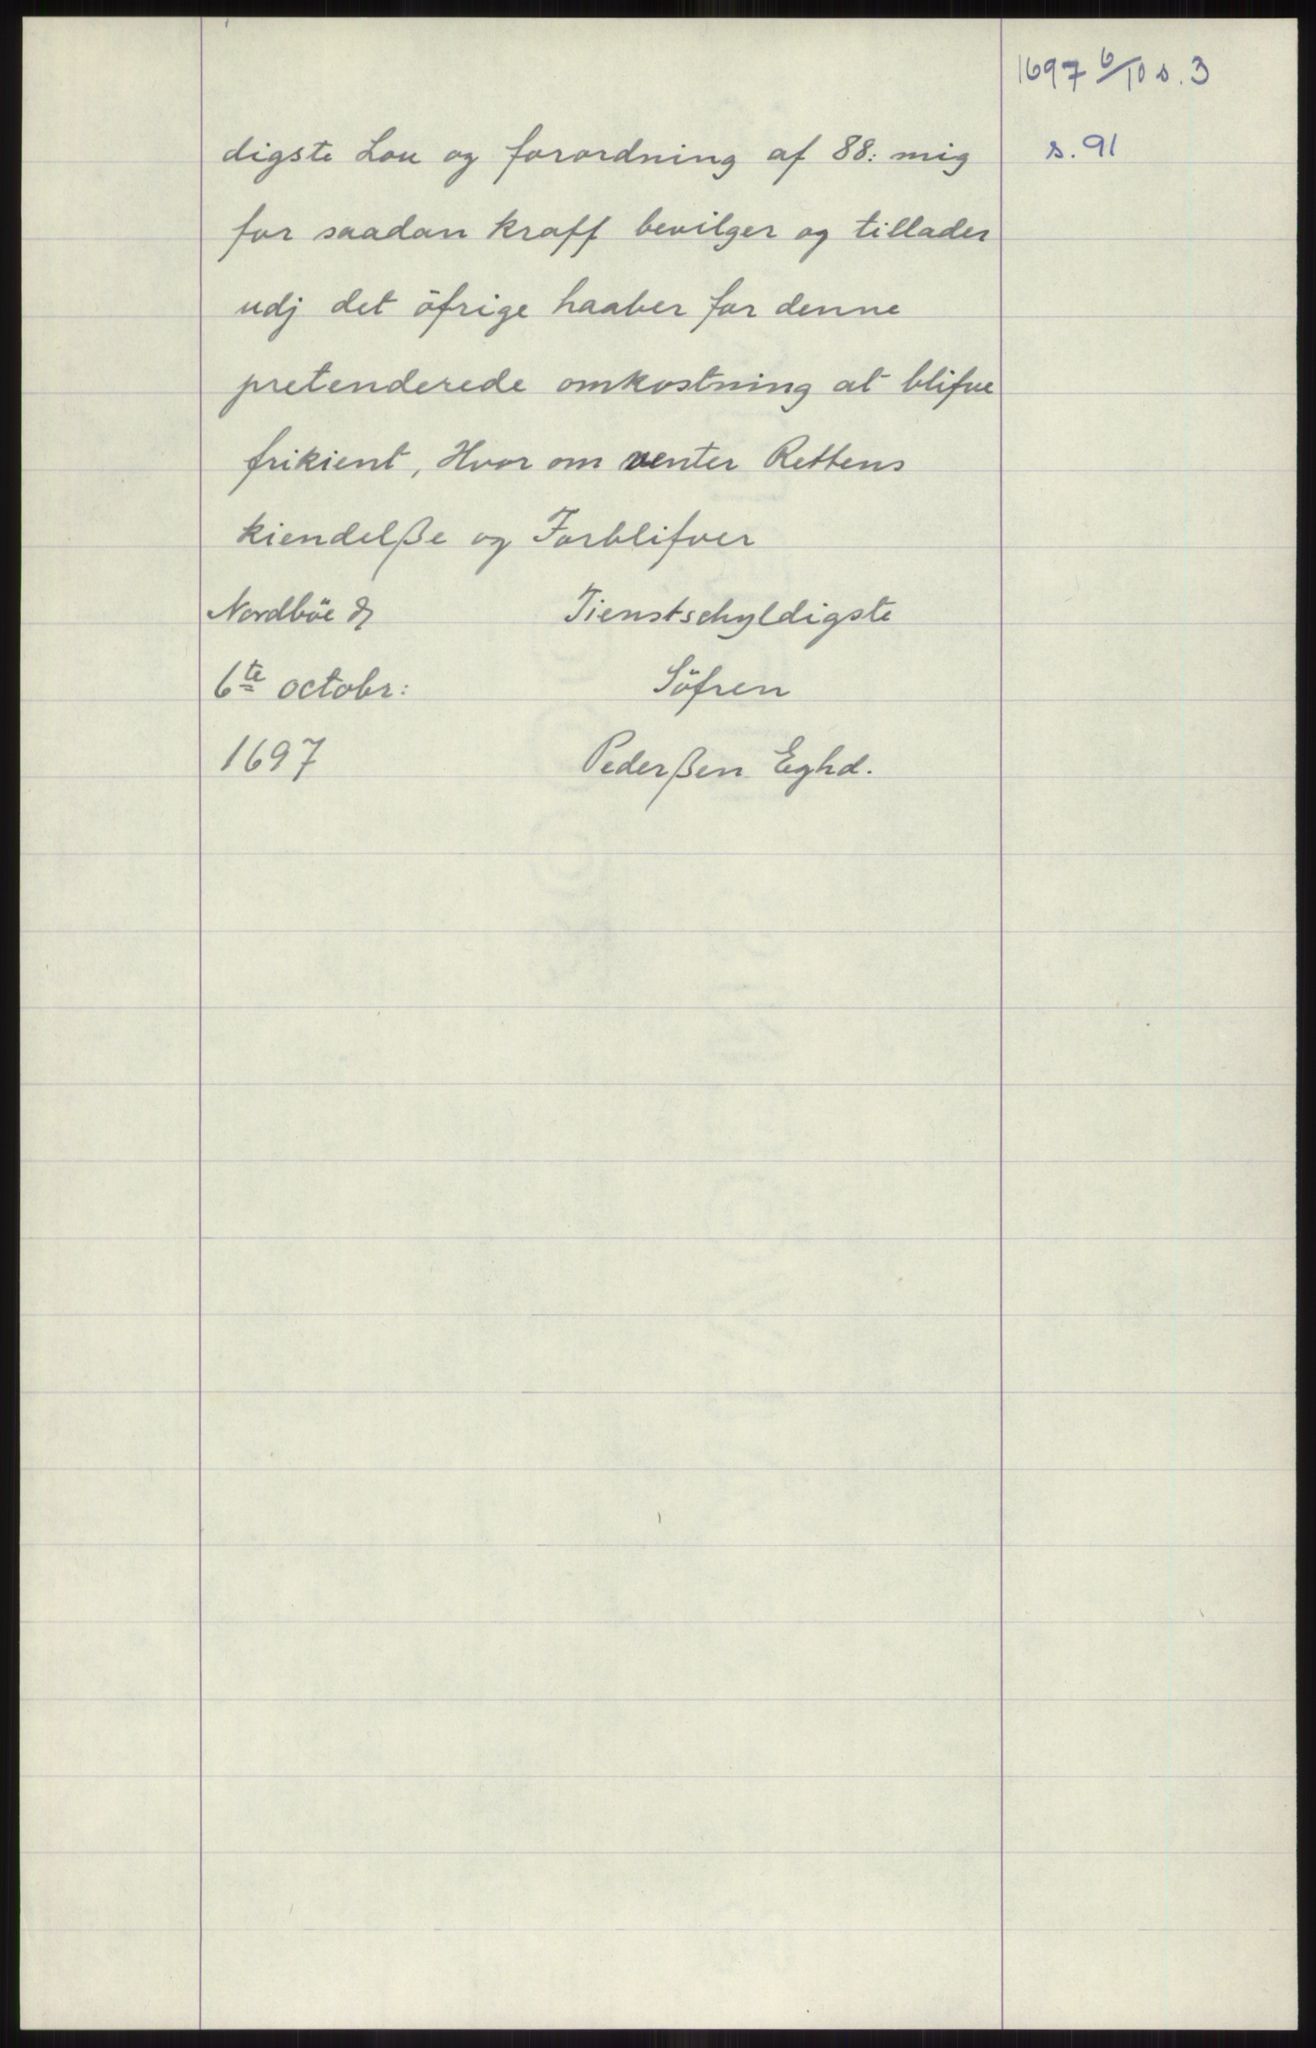 1697 6/10 s. 3
digste Lou og forordning af 88: mig s. 91
for saadan kraff bevilger og tillader
udj det öfrige haaber for denne
pretenderede omkostning at blifue
frikient, Hvor om venter Rettens
kiendelße og Forblifver
Nordböe d Tienstschyldigste
6te octobr: Söfren
1697 Pederßen Eghd.